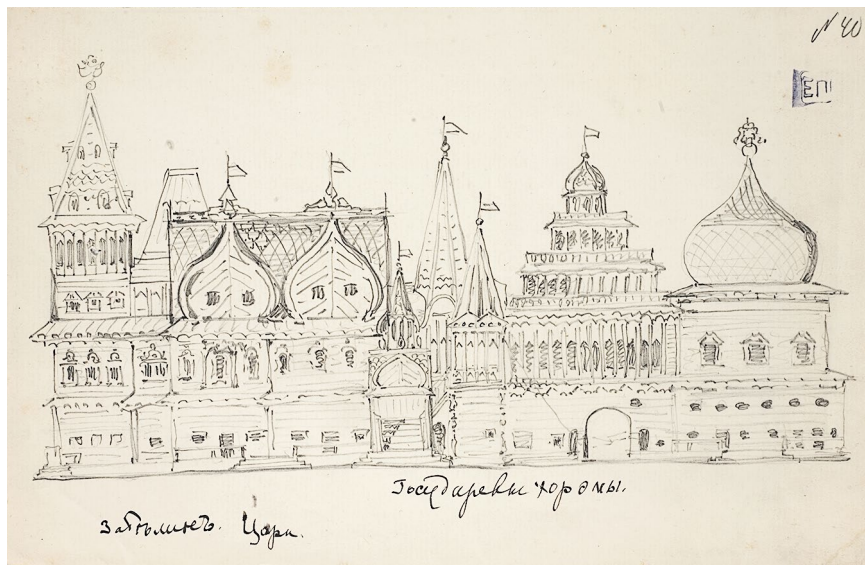 N 40
Государевы хоромы.
Забѣлинъ. Цари.